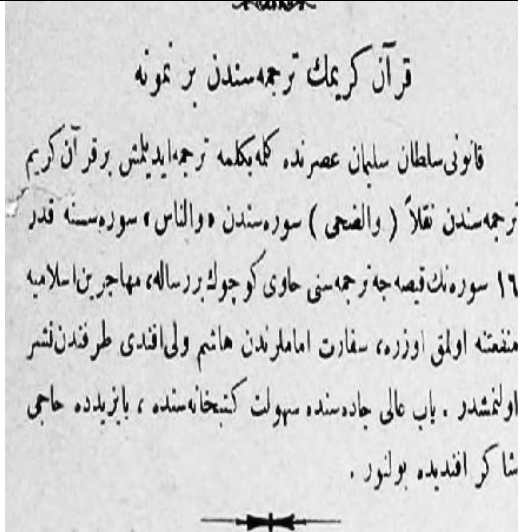 قرآن كريمك ترجمه‌سندن بر نمونه
قانونی سلطان سليمان عصرنده كله بكلمه ترجمه ايديلمش بر قرآن كريم
ترجمه‌سندن نقلاً ( والضحی ) سوره‌سندن «والناس» سوره‌سنه قدر
١٦ سوره‌نك قيصه‌جه ترجمه‌سنی حاوی كوچوك بر رساله، مهاجرين اسلاميه
منفعتنه اولمق اوزره، سفارت اماملرندن هاشم ولی افندی طرفندن نشر
اولنمشدر . باب عالی جاده‌سنده سهولت كتبخانه‌سنده ، بايزيدده حاجی
شاكر افنديده بولنور .